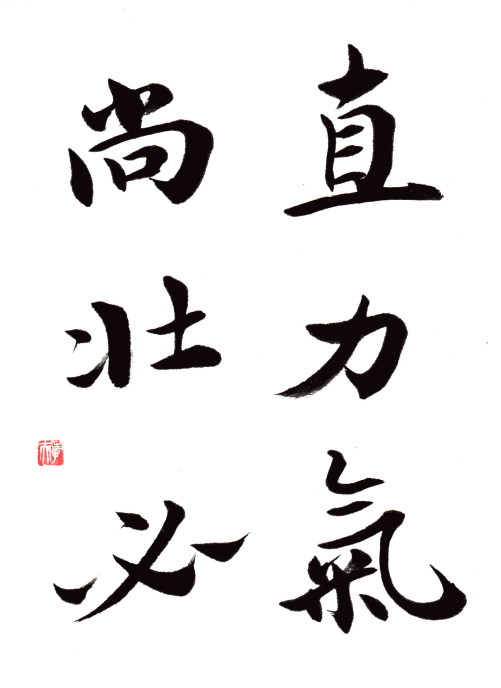 直力氣
尚壯必